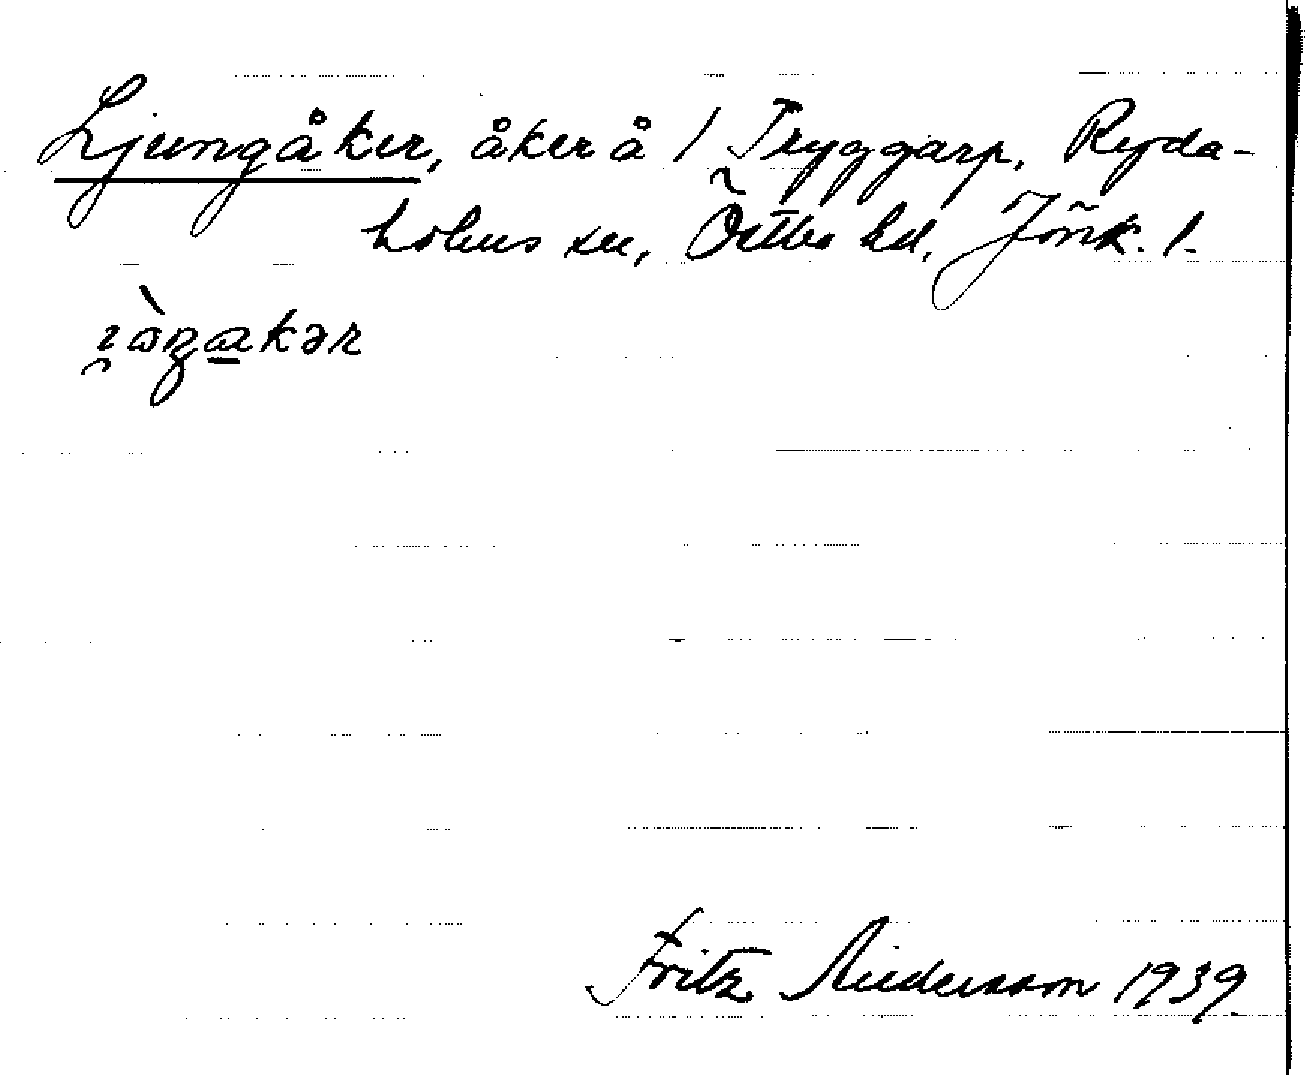 Ljungåker, åker å / Tryggarp, Ryda-
holms sn, Östbo hd, Jönk. l.
Fritz Andersson 1939